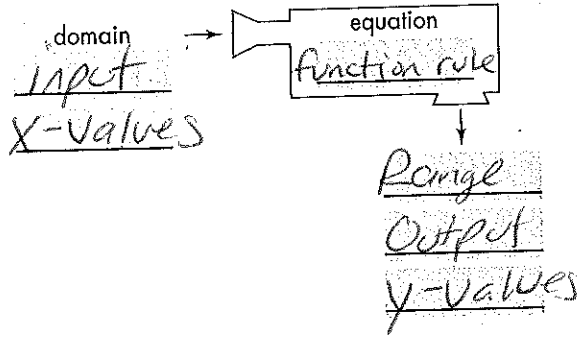 domain
input
X-Values
equation
function rule
Range
Output
y-values